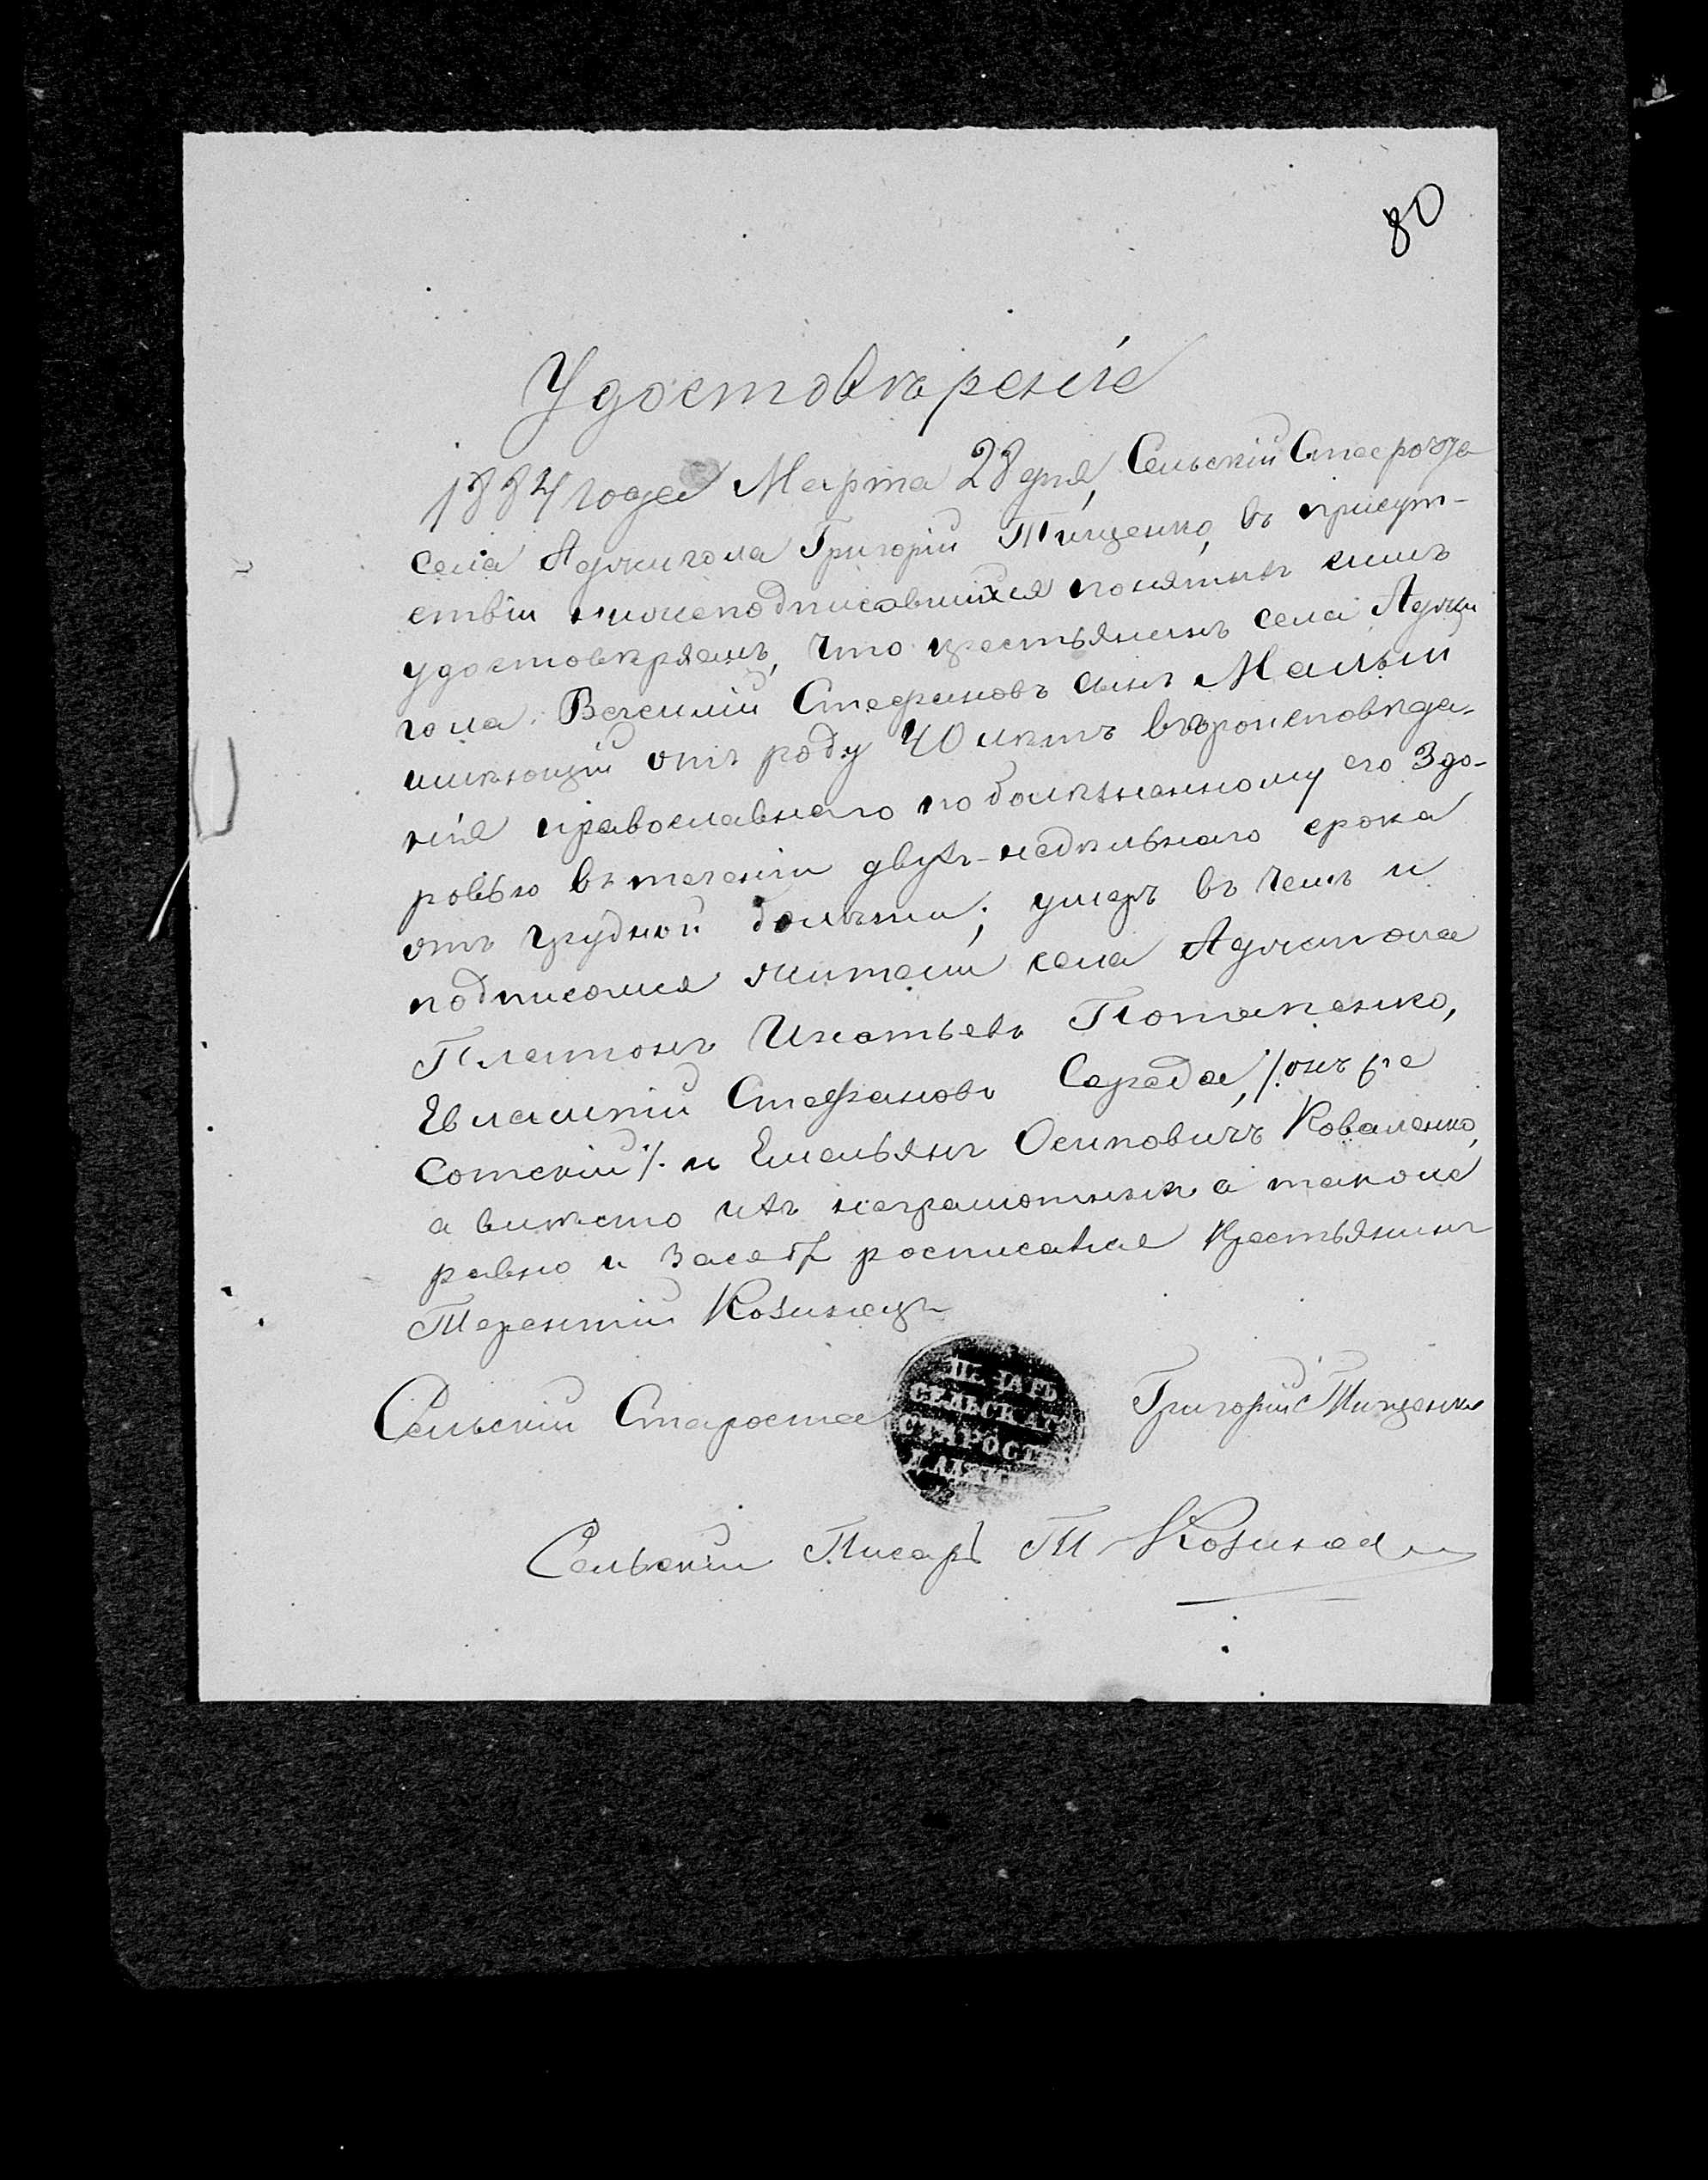 80
Удостовѣреніе
1884 года Марта 28 дня, Сельскій Староста
села Аджигола Григорій Тищенко, въ присут-
ствіи нижеподписавшихся понятыхъ симъ
удостовѣряемъ, что крестьянинъ села Аджи
гола. Василій Стефановъ сынъ Малый
имѣющій отъ роду 40 лѣтъ вѣроисповѣда-
нія православнаго по болѣзненному его Здо-
ровью въ теченіи двухъ-недѣльнаго срока
отъ грудной болѣзни; умеръ въ чемъ и
подписомся жители села Аджигола
Платонъ Игнатьевъ Потапенко,
Евлампій Стефановъ Середа, /. онъ же
Сотскій ./. и Емельянъ Осиповичъ Коваленко,
а вмѣсто ихъ неграмотныхъ а такоже
равно и За себя росписался Крестьянинъ
Терентій Козинецъ
Сельскій Староста Григорій Тищенко
ПЕЧАТЬ
СЕЛЬСКАГ
СТАРОСТ
Сельскій Писарь Т Козинец